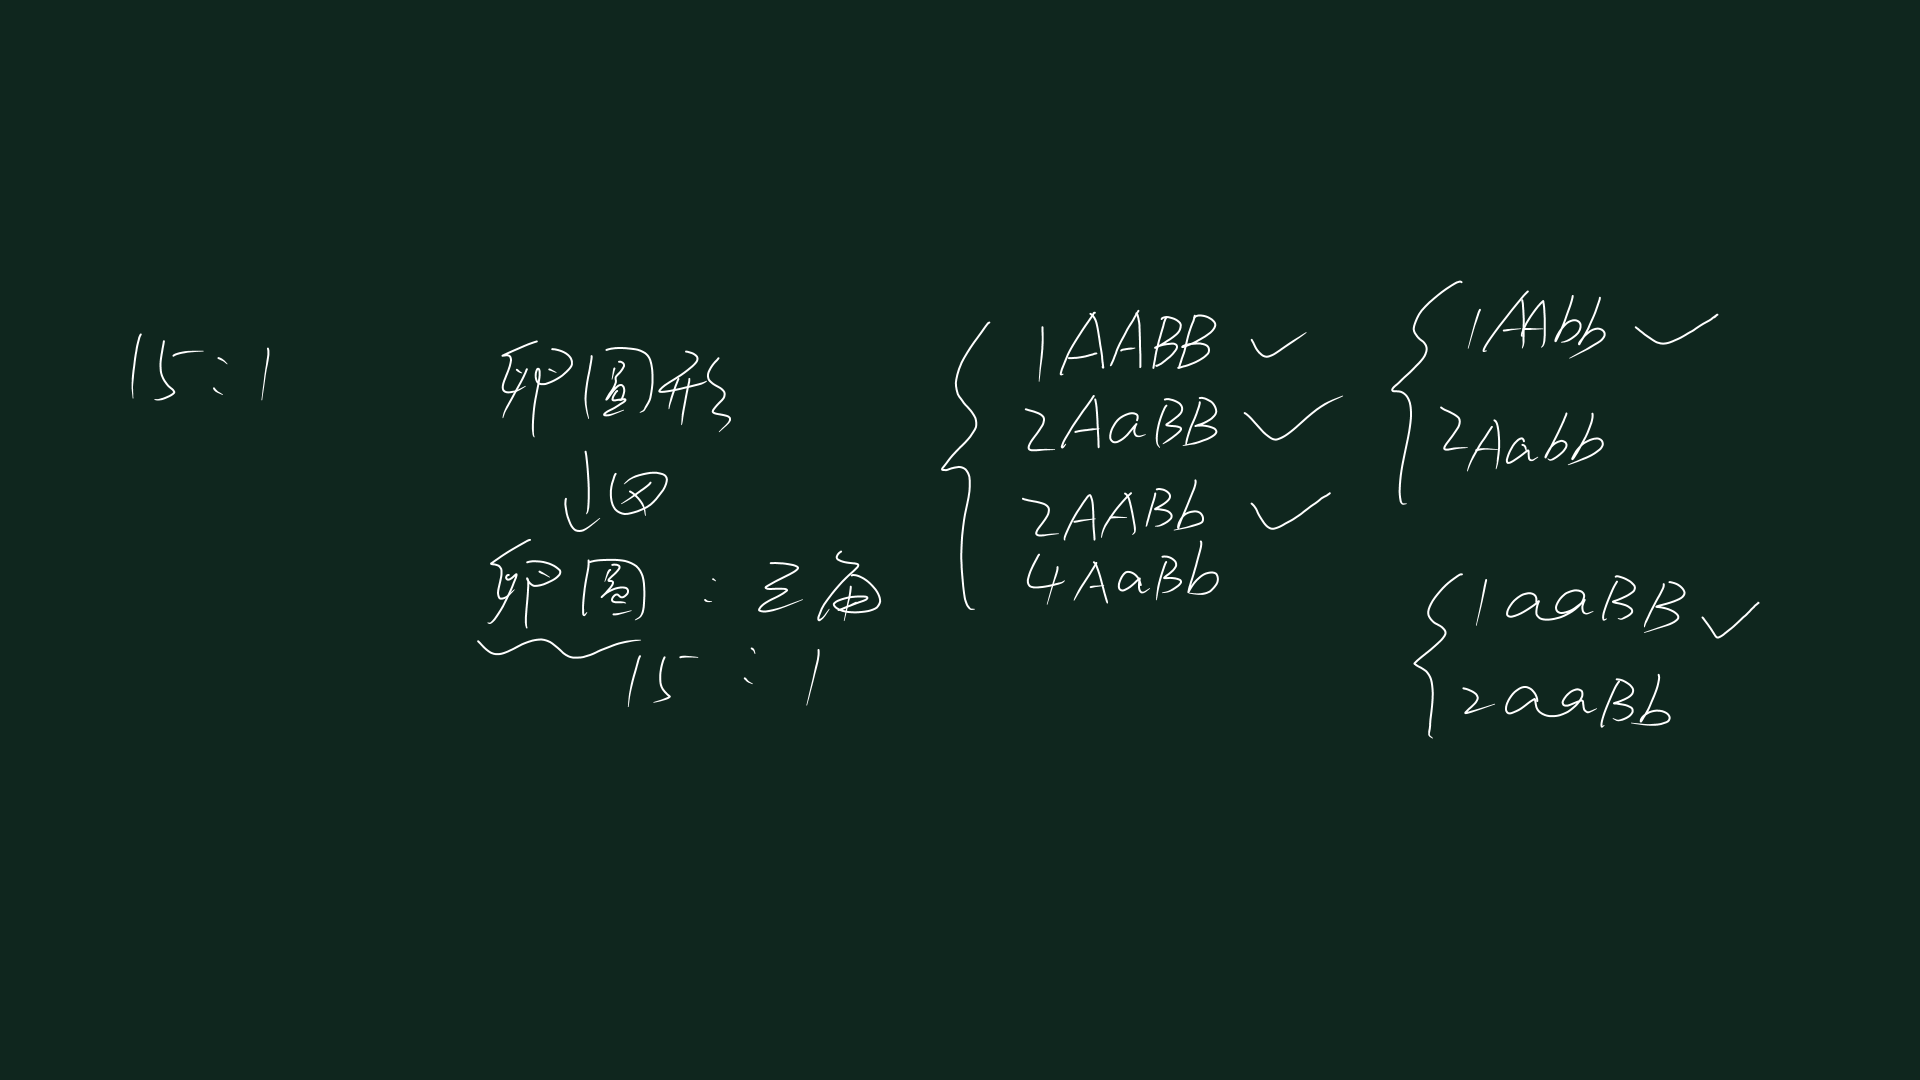 15:1
卵圆形
↓⊗
卵圆 : 三角
15 : 1
1AABB ✓
2AaBB ✓
2AABb ✓
4AaBb
1AAbb ✓
2Aabb
1aaBB ✓
2aaBb